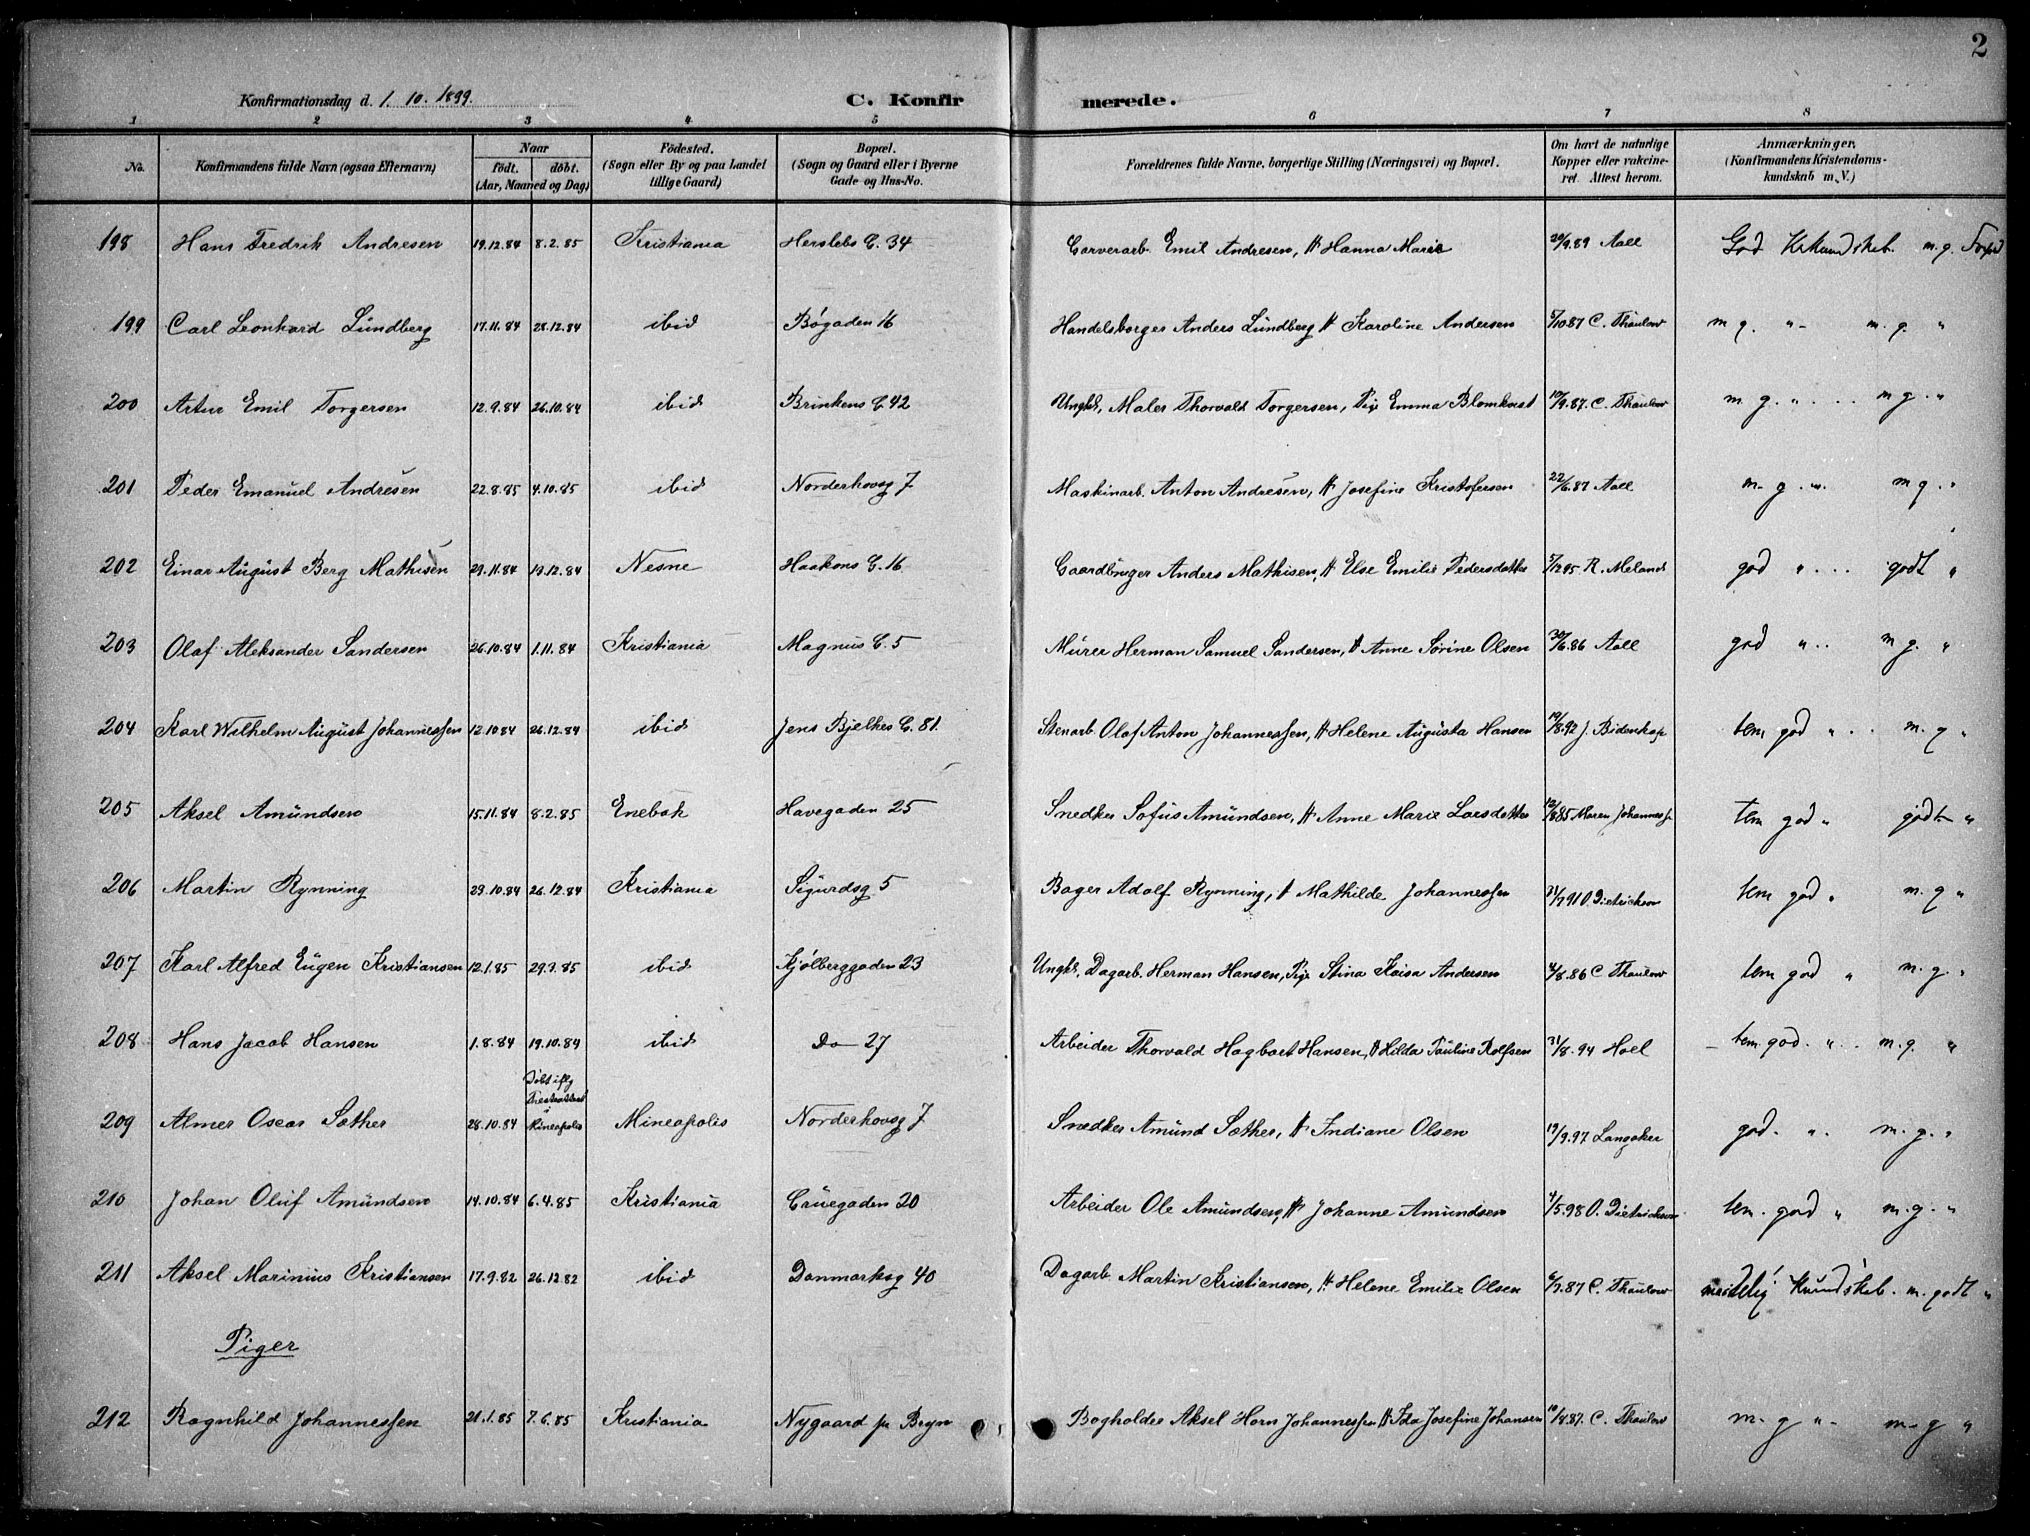 2
Konfirmationsdag d. 1. 10. 1899. C. Konfirmerede.
1 2 3 4 5 6 7 8
No. Konfirmandens fulde Navn (ogsaa Efternavn) Naar født. døbt. (Aar, Maaned og Dag) Fødested. (Sogn eller By og paa Landet tillige Gaard) Bopæl. (Sogn og Gaard eller i Byerne Gade og Hus-No. Forældrenes fulde Navne, borgerlige Stilling (Næringsvei) og Bopæl. Om havt de naturlige Kopper eller vakcineret. Attest herom. Anmærkninger. (Konfirmandens Kristendomskundskab m. V.)
198 Hans Fredrik Andresen 19.12.84 8.2.85 Kristiania Herslebs G. 34 Garverarb. Emil Andresen, H Hanna Marie 20/9.89 Aall God Kr.kundskab. m.g.
199 Carl Leonhard Lundberg 17.11.84 28.12.84 ibid Bøgaden 16 Handelsborger Anders Lundberg H Karoline Andersen 5/10 87 C. Thaulow m g. " - m. g. "
200 Artur Emil Torgersen 12.9.84 26.10.84 ibid Brinkens G 42 Ungk., Maler Thorvald Torgersen, Pige Emma Blomkvist 10/9.87. C. Thaulow m g. " . . m g. "
201 Peder Emanuel Andresen 22.8.85 4.10.85 ibid Norderhovsg 7 Maskinarb. Anton Andresen, H Josefine Kristofersen 22/6.87 Aall m. g. " m g. "
202 Einar August Berg Mathisen 29.11.84 19.12.84 Nesne Haakons G. 16 Gaardbruger Anders Mathisen, H Else Emilie Pedersdatter 5/12 95 R. Meland god " . . godt "
203 Olaf Aleksander Sandersen 26.10.84 1.11.84 Kristiania Magnus G. 5 Murer Herman Samuel Sandersen, H Anne Sørine Olsen 30/6.86 Aall god " . . m g. "
204 Karl Wilhelm August Johannessen 12.10 84 26.12.84 ibid Jens Bjelkes G. 81. Stenarb Olaf Anton Johannessen, H Helene Augusta Hansen 19/8.92 J. Bidenkap tem god " . . m. g "
205 Aksel Amundsen 15.11.84 8.2.85 Enebak Havegaden 25 Snedker Sofus Amundsen, H Anne Marie Larsdatter 12/8 85 Maren Johannessen tem god " godt "
206 Martin Rynning 29.10.84 26.12.84 Kristiania Sigurdsg 5 Bager Adolf Rynning, H Mathilde Johannessen 31/7 91 O. Dietrichson tem god " m. g "
207 Karl Alfred Eugen Kristiansen 12.1.85 29.3.85 ibid Kjølberggaden 23 Ungk. Dagarb. Herman Hansen, Pige Stina Kaisa Andersen 4/8.86 C Thaulow tem god " m. g. "
208 Hans Jacob Hansen 1.8.84 19.10.84 ibid Do 27 Arbeider Thorvald Hagbart Hansen, H Hilda Pauline Rolfsen 31/8.94 Hoel tem. god. " . . m. g. "
209 Almer Oscar Sæther 28.10.84 Døbt iflg Presteattest i Mineapolis Mineapolis Norderhovsg 7 Snedker Amund Sæther, H Indiane Olsen 19/9.97 Langaker god. " . m. g. "
210 Johan Oluf Amundsen 14.10.84 6.4.85 Kristiania Gruegaden 20 Arbeider Ole Amundsen, H Johanne Amundsen 4/5.98 O. Dietrichson tem. god " m. g. "
211 Aksel Marinius Kristiansen 17.9.82 26.12.82 ibid Danmarksg 40 Dagarb Martin Kristiansen, H Helene Emilie Olsen 6/7.87 C. Thaulow maadelig Kundskab. m. godt "
Piger
212 Ragnhild Johannessen 21.1.85 7.6.85 Kristiania Nygaard pr Bryn Bogholder Aksel Horn Johannessen H Ida Josefine Johansen 10/8 87. C. Thaulow m. g " - m. g "